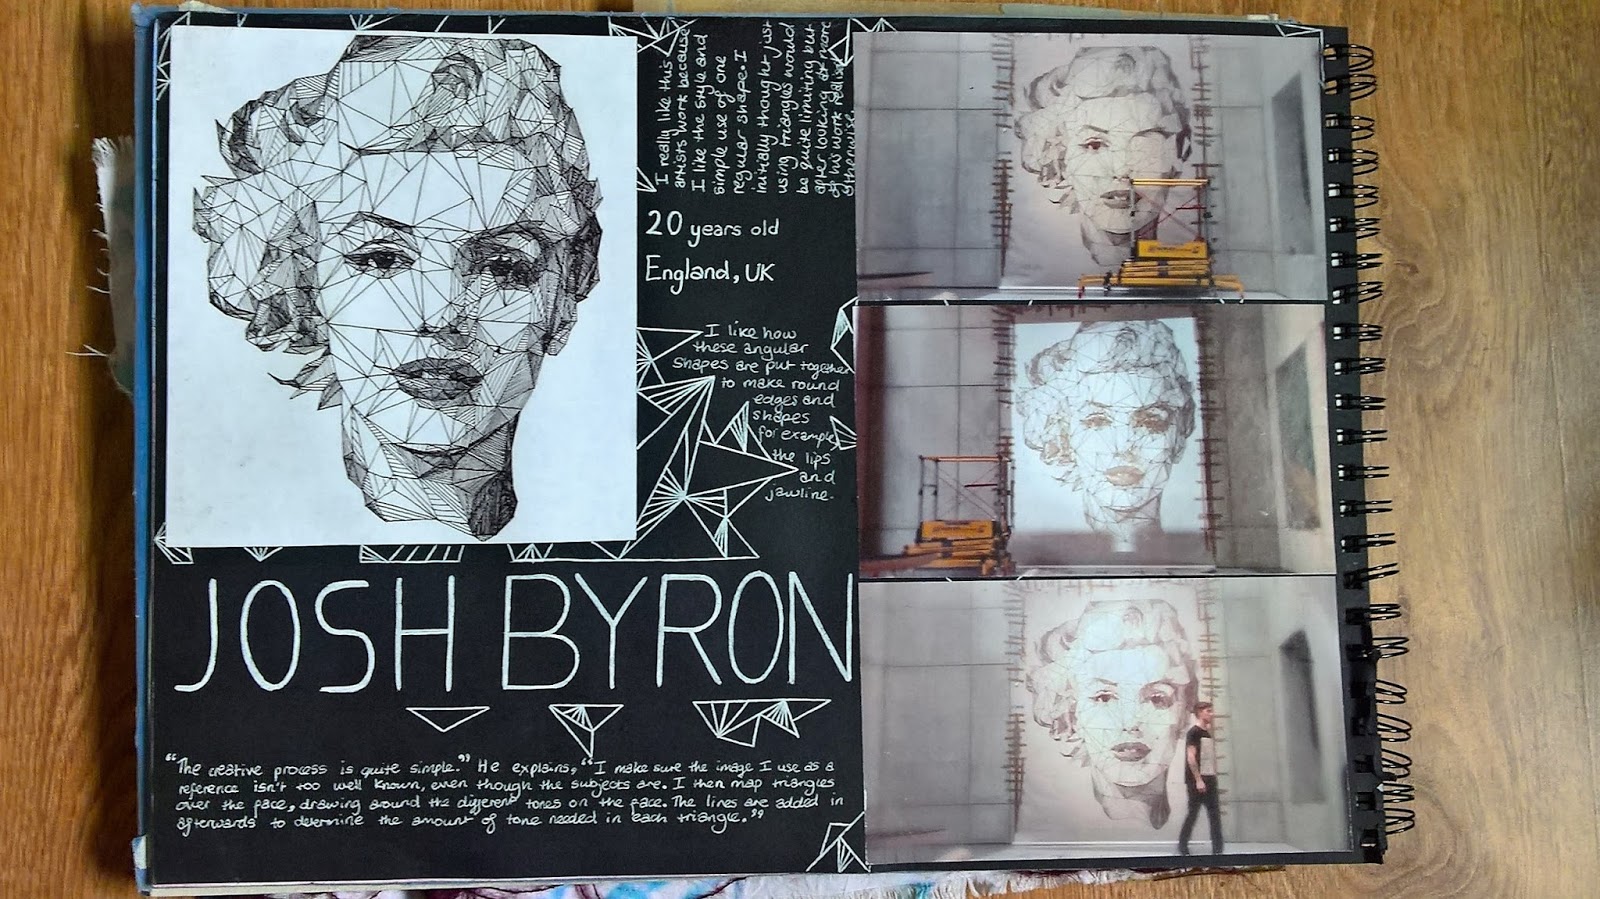 I really like this
artists work because
I like the style and
simple use of one
regular shape. I
initially thought just
using triangles would
be quite limiting but
after looking at more
of his work realised
otherwise.
20 years old
England, UK
I like how
these angular
shapes are put together
to make round
edges and
shapes
for example,
the lips
and
jawline.
JOSH BYRON
"The creative process is quite simple." He explains, "I make sure the image I use as a
reference isn't too well known, even though the subjects are. I then map triangles
over the face, drawing around the different tones on the face. The lines are added in
afterwards to determine the amount of tone needed in each triangle."